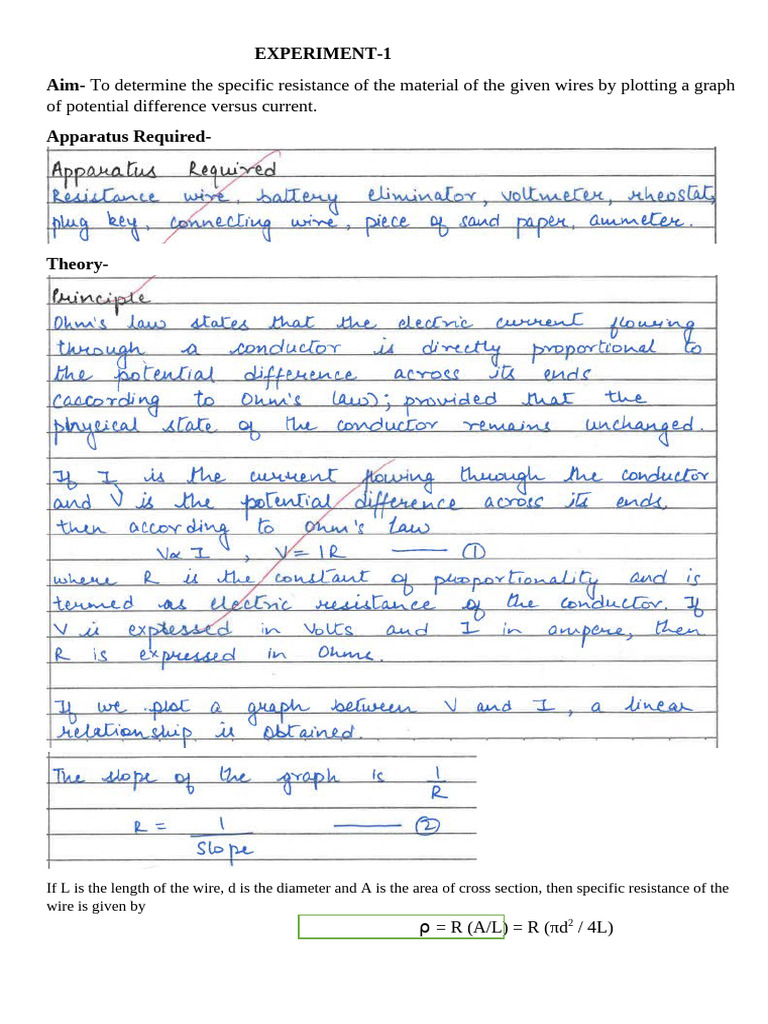 EXPERIMENT-1
Aim- To determine the specific resistance of the material of the given wires by plotting a graph
of potential difference versus current.
Apparatus Required-
Apparatus Required
Resistance wire, battery eliminator, voltmeter, rheostat,
plug key, connecting wire, piece of sand paper, ammeter.
Theory-
Principle
Ohm's law states that the electric current flowing
through a conductor is directly proportional to
the potential difference across its ends
(according to Ohm's law); provided that the
physical state of the conductor remains unchanged.
If I is the current flowing through the conductor
and V is the potential difference across its ends,
then according to Ohm's law
V∝ I , V = IR —— ①
where R is the constant of proportionality and is
termed as electric resistance of the conductor. If
V is expressed in Volts and I in ampere, then
R is expressed in Ohms.
If we plot a graph between V and I, a linear
relationship is obtained.
The slope of the graph is 1/R
R = 1/Slope —— ②
If L is the length of the wire, d is the diameter and A is the area of cross section, then specific resistance of the
wire is given by
ρ = R (A/L) = R (πd² / 4L)